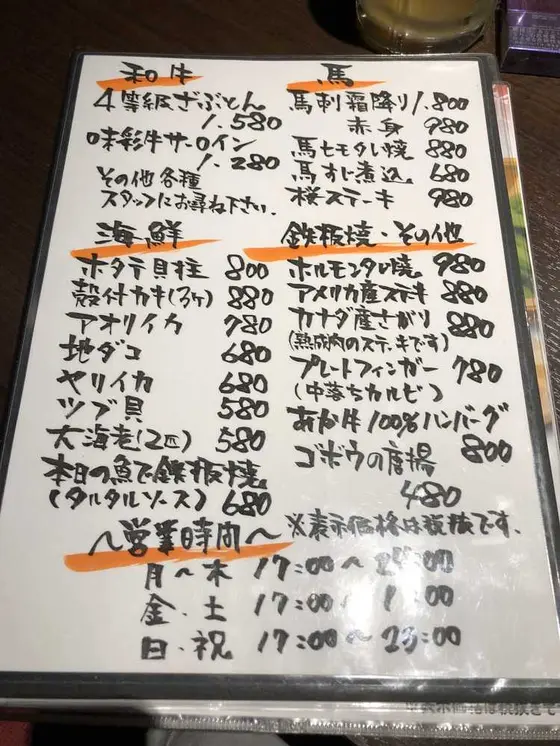 和牛
4等級ざぶとん
1.580
味彩牛サーロイン
1.280
その他各種
スタッフにお尋ね下さい.
海鮮
ホタテ貝柱 800
殻付カキ(3ヶ) 880
アオリイカ 780
地ダコ 680
ヤリイカ 680
ツブ貝 580
大海老(2匹) 580
本日の魚で鉄板焼
(タルタルソース) 680
馬
馬刺霜降り 1.800
赤身 980
馬ヒモタレ焼 880
馬すじ煮込 680
桜ステーキ 980
鉄板焼・その他
ホルモンタレ焼 980
アメリカ産ステキ 880
カナダ産さがり 880
(熟成肉のステーキです)
プレートフィンガー 780
(中落ちカルビ)
あか牛100%ハンバーグ
800
ゴボウの唐揚
480
※表示価格は税抜です.
〜営業時間〜
月〜木 17:00〜24:00
金・土 17:00〜1:00
日・祝 17:00〜23:00